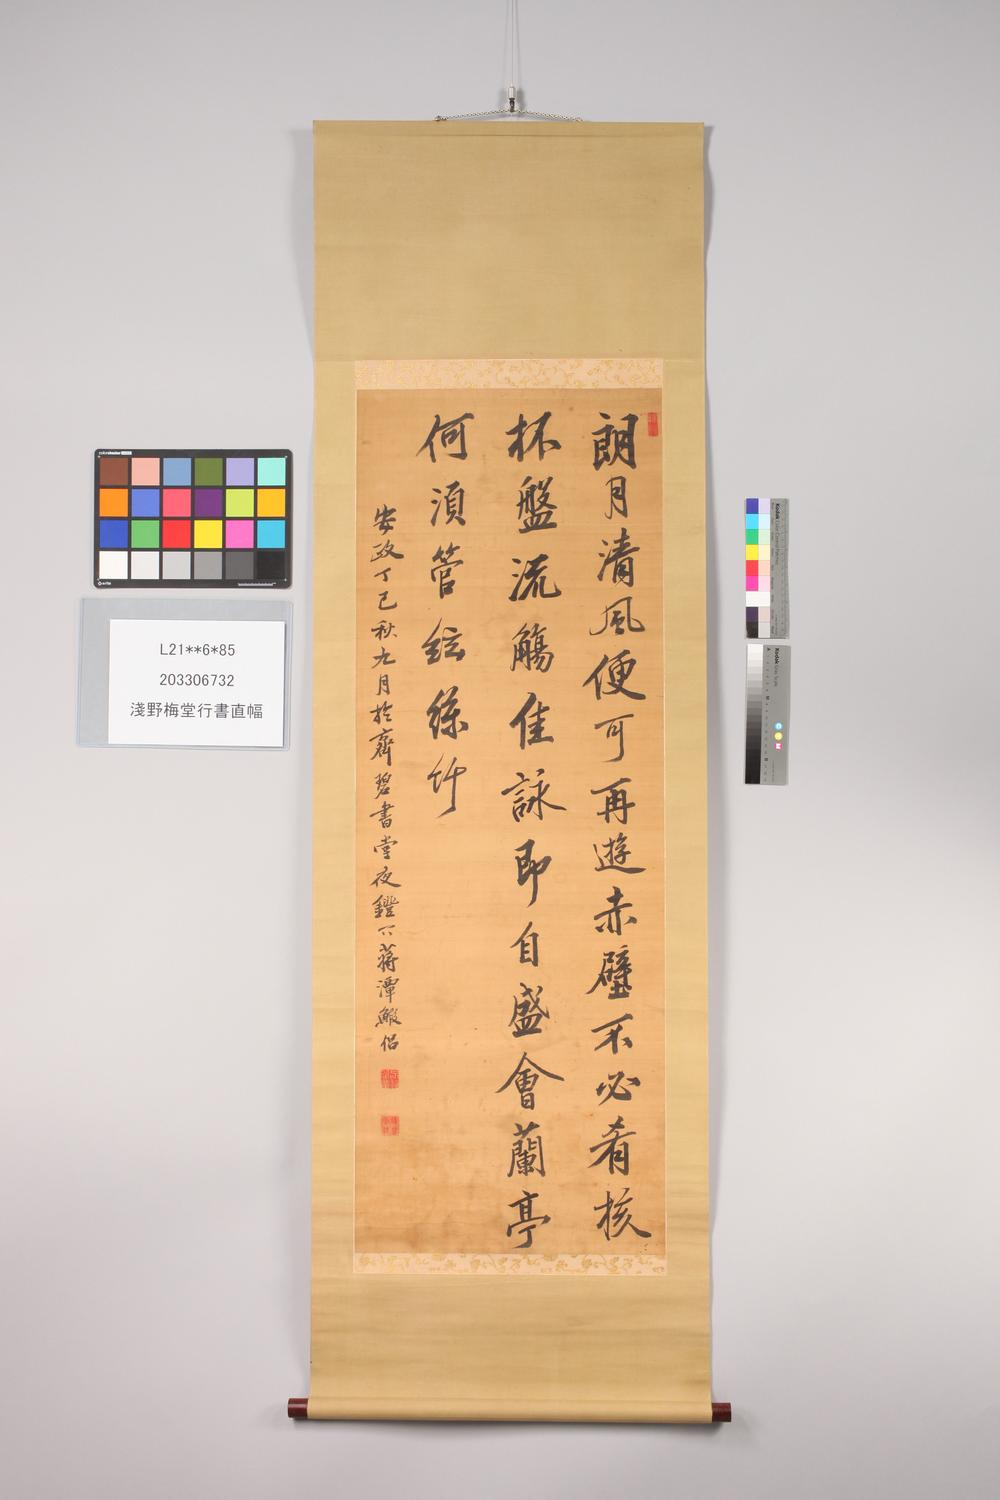 朗月清風便可再遊赤壁不必肴核
杯盤流觴佳詠即自盛會蘭亭
何須管絃絲竹
安政丁巳秋九月於齋碧書堂夜鐙下蔣潭鰥侶
L21**6*85
203306732
淺野梅堂行書直幅